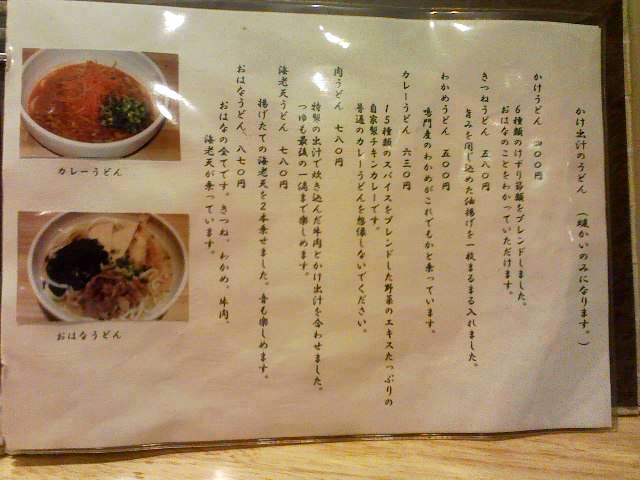 かけ出汁のうどん　（暖かいのみになります。）
かけうどん　四〇〇円
６種類のけずり節類をブレンドしました。
おはなのことをわかっていただけます。
きつねうどん　五八〇円
旨みを閉じ込めた油揚げを一枚まるまる入れました。
わかめうどん　五〇〇円
鳴門産のわかめがこれでもかと乗っています。
カレーうどん　六三〇円
１５種類のスパイスをブレンドした野菜のエキスたっぷりの
自家製チキンカレーです。
普通のカレーうどんを想像しないでください。
肉うどん　七八〇円
特製の出汁で炊き込んだ牛肉とかけ出汁を合わせました。
つゆも最後の一滴まで楽しめます。
海老天うどん　七八〇円
揚げたての海老天を２本乗せました。音も楽しめます。
おはなうどん　八七〇円
おはなの全てです。きつね、わかめ、牛肉、
海老天が乗っています。
カレーうどん
おはなうどん